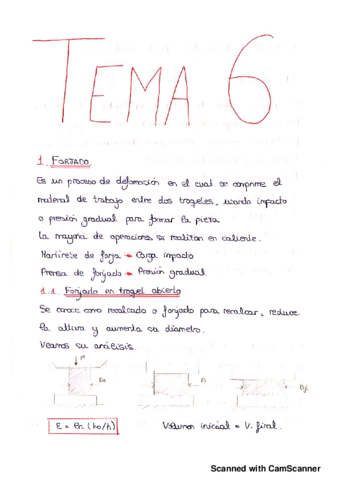 TEMA 6
1. FORJADO.
Es un proceso de deformación en el cual se comprime el
material de trabajo entre dos troqeles, usando impacto
o presión gradual para formar la pieza.
La mayoria de operaciones se realizan en caliente.
Martinete de forja → Carga impacto
Prensa de forjado → Presión gradual
1.1. Forjado en troquel abierto
Se conoce como recalcado o forjado para recalcar, reduce
la altura y aumenta su diámetro.
Veamos su análisis.
Do D Df
E = ln (ho/h) Volumen inicial = V. final.
Scanned with CamScanner